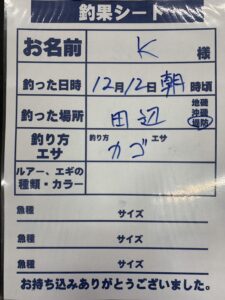 釣果シート
お名前 K 様
釣った日時 12月12日朝 時頃
釣った場所 田辺 地磯 沖磯 堤防
釣り方 エサ 釣り方 カゴ エサ
ルアー、エギの種類・カラー
魚種 サイズ
魚種 サイズ
魚種 サイズ
お持ち込みありがとうございました。